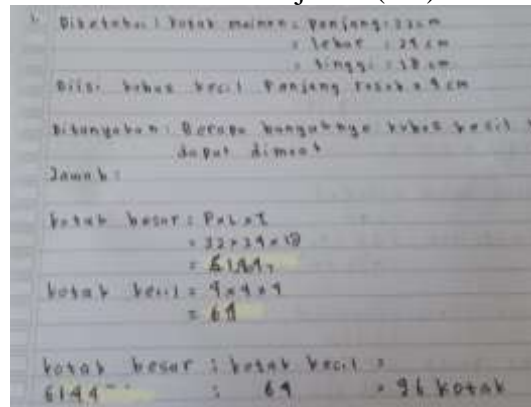 1. Diketahui : kotak mainan : panjang : 32 cm
: lebar : 24 cm
: tinggi :
Diisi kubus kecil Panjang rusuk = 4 cm
Ditanyakan : Berapa banyaknya kubus kecil
dapat dimuat
Jawab :
kotak besar : P x L x T
= 32 x 24 x
= 6144
kotak kecil = 4 x 4 x 4
= 64
kotak besar : kotak kecil =
6144 : 64 = 96 kotak